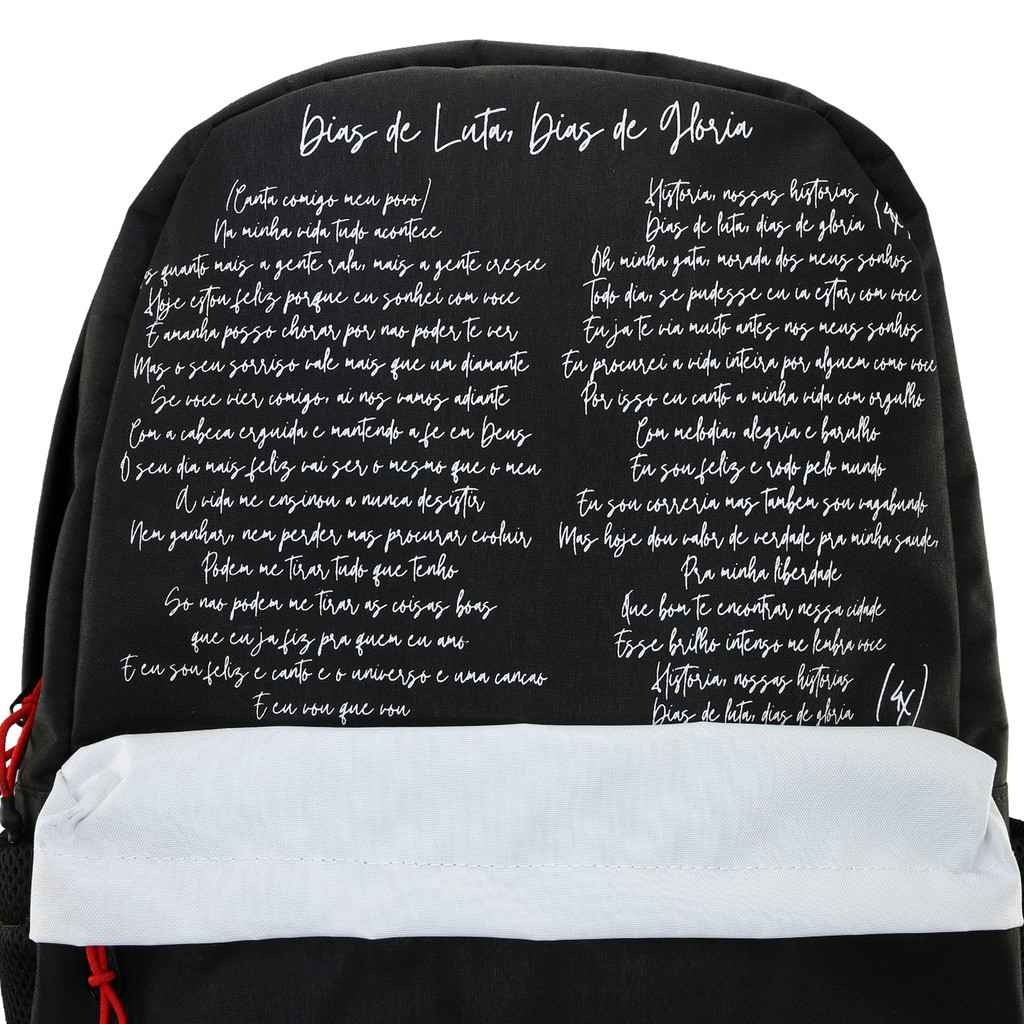 Dias de Luta, Dias de Glória
(Canta comigo meu povo)
Na minha vida tudo acontece
quanto mais a gente rala, mais a gente cresce
Hoje estou feliz porque eu sonhei com voce
E amanha posso chorar por nao poder te ver
Mas o seu sorriso vale mais que um diamante
Se voce vier comigo, ai nos vamos adiante
Com a cabeca erguida e mantendo a fe em Deus
O seu dia mais feliz vai ser o mesmo que o meu
A vida me ensinou a nunca desistir
Nem ganhar, nem perder mas procurar evoluir
Podem me tirar tudo que tenho
So nao podem me tirar as coisas boas
que eu ja fiz pra quem eu amo
E eu sou feliz e canto e o universo e uma cancao
E eu vou que vou
Historia, nossas historias
Dias de luta, dias de gloria (4x)
Oh minha gata, morada dos meus sonhos
Todo dia, se pudesse eu ia estar com voce
Eu ja te via muito antes nos meus sonhos
Eu procurei a vida inteira por alguem como voce
Por isso eu canto a minha vida com orgulho
Com melodia, alegria e barulho
Eu sou feliz e rodo pelo mundo
Eu sou correria mas tambem sou vagabundo
Mas hoje dou valor de verdade pra minha saude,
Pra minha liberdade
Que bom te encontrar nessa cidade
Esse brilho intenso me lembra voce
Historia, nossas historias
Dias de luta, dias de gloria (4x)